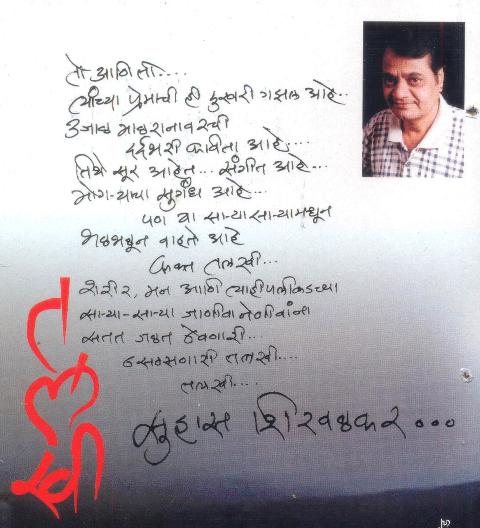 तो आणि ती....
त्यांच्या प्रेमाची ही दुखरी गझल आहे..
उजाड माळरानावरची
दर्दभरी कविता आहे....
तिथे सूर आहेत... संगीत आहे...
मोगऱ्याचा सुगंध आहे...
पण या साऱ्यासाऱ्यामधून
भळभळून वाहते आहे
फक्त तलखी...
शरीर, मन आणि त्याहीपलीकडच्या
साऱ्या-साऱ्या जाणीवानेणीवांना
सतत जळत ठेवणारी...
ठसठसणारी तलखी....
तलखी....
सुहास शिरवळकर...
तलखी